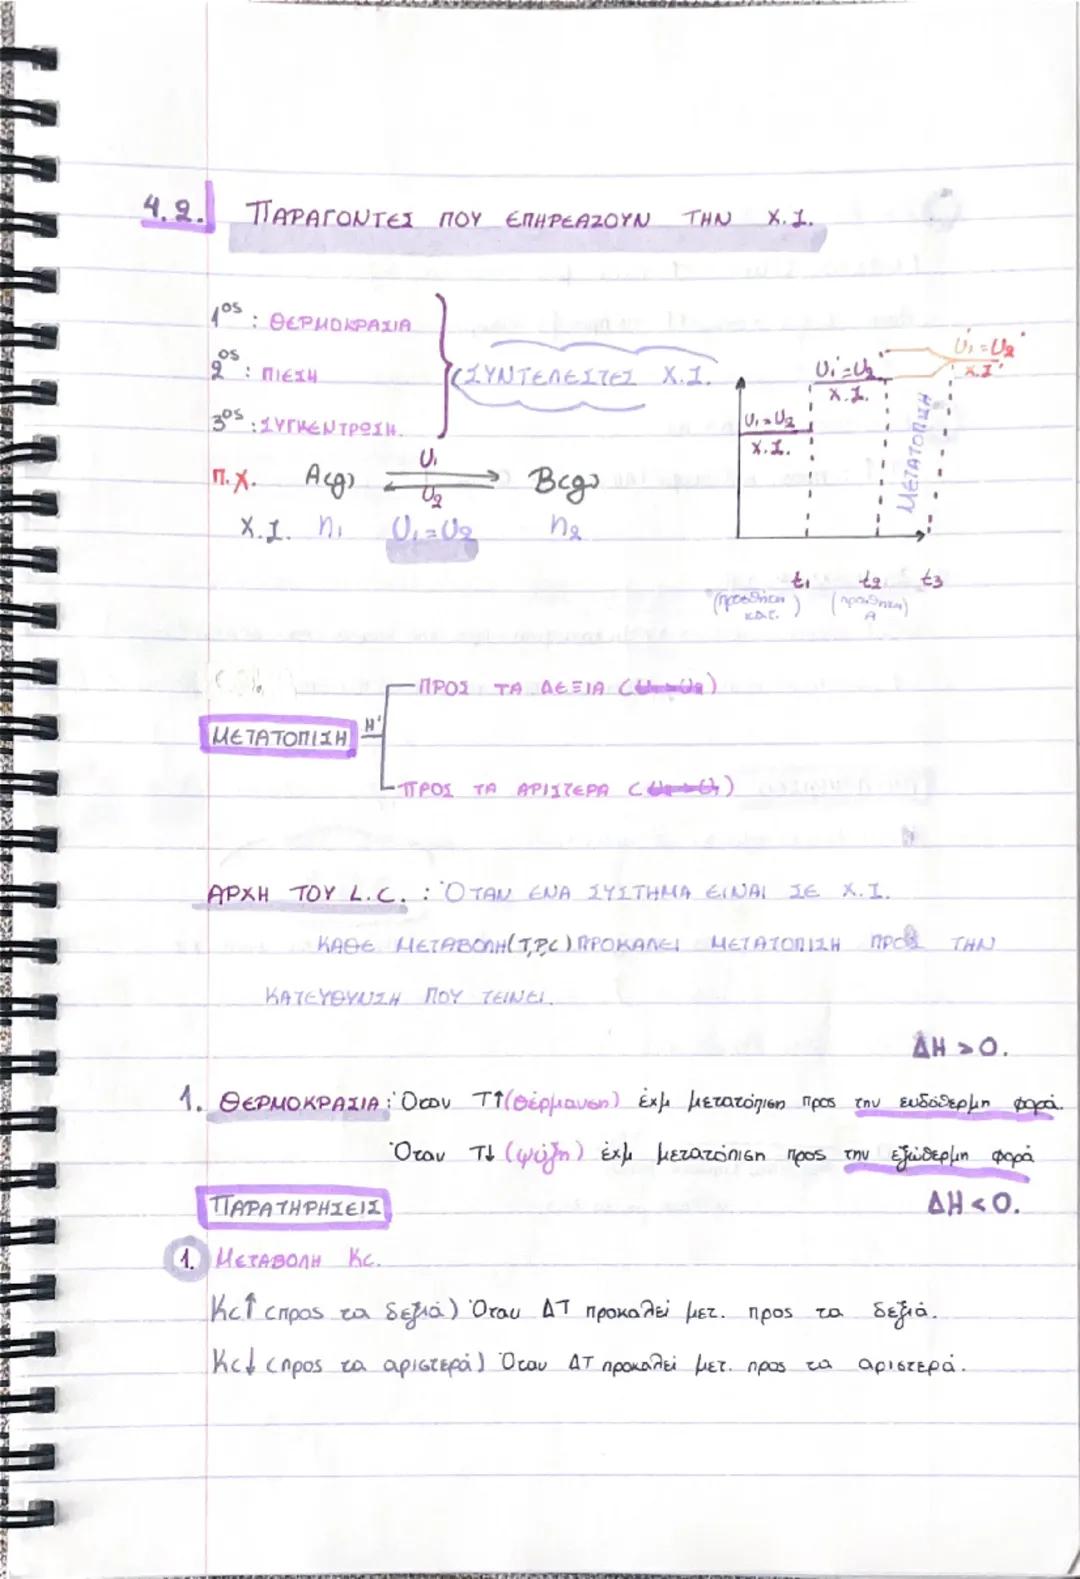 4.2. ΠΑΡΑΓΟΝΤΕΣ ΠΟΥ ΕΠΗΡΕΑΖΟΥΝ ΤΗΝ Χ.Ι.
1ος : ΘΕΡΜΟΚΡΑΣΙΑ
2ος : ΠΙΕΣΗ
3ος : ΣΥΓΚΕΝΤΡΩΣΗ.
ΣΥΝΤΕΛΕΣΤΕΣ Χ.Ι.
Π.Χ. A(g) U₁ U₂ B(g)
Χ.Ι. n₁ U₁=U₂ n₂
U₁=U₂
Χ.Ι.
U₁'=U₂'
Χ.Ι.
ΜΕΤΑΤΟΠΙΣΗ
U₁''=U₂''
Χ.Ι.'
t₁ t₂ t₃
(προσθήκη κατ.) (προσθήκη Α)
ΜΕΤΑΤΟΠΙΣΗ Η'
ΠΡΟΣ ΤΑ ΔΕΞΙΑ (U₁>U₂)
ΠΡΟΣ ΤΑ ΑΡΙΣΤΕΡΑ (U₂>U₁)
ΑΡΧΗ ΤΟΥ L.C. : ΌΤΑΝ ΕΝΑ ΣΥΣΤΗΜΑ ΕΙΝΑΙ ΣΕ Χ.Ι.
ΚΑΘΕ ΜΕΤΑΒΟΛΗ (T,P,C) ΠΡΟΚΑΛΕΙ ΜΕΤΑΤΟΠΙΣΗ ΠΡΟΣ ΤΗΝ
ΚΑΤΕΥΘΥΝΣΗ ΠΟΥ ΤΕΙΝΕΙ.
ΔΗ >0.
1. ΘΕΡΜΟΚΡΑΣΙΑ : Όταν Τ↑ (θέρμανση) έχω μετατόπιση προς την ενδόθερμη φορά.
Όταν Τ↓ (ψύξη) έχω μετατόπιση προς την εξώθερμη φορά
ΠΑΡΑΤΗΡΗΣΕΙΣ
ΔΗ <0.
1. ΜΕΤΑΒΟΛΗ Kc.
Kc↑ (προς τα δεξιά) Όταν ΔΤ προκαλεί μετ. προς τα δεξιά.
Kc↓ (προς τα αριστερά) Όταν ΔΤ προκαλεί μετ. προς τα αριστερά.